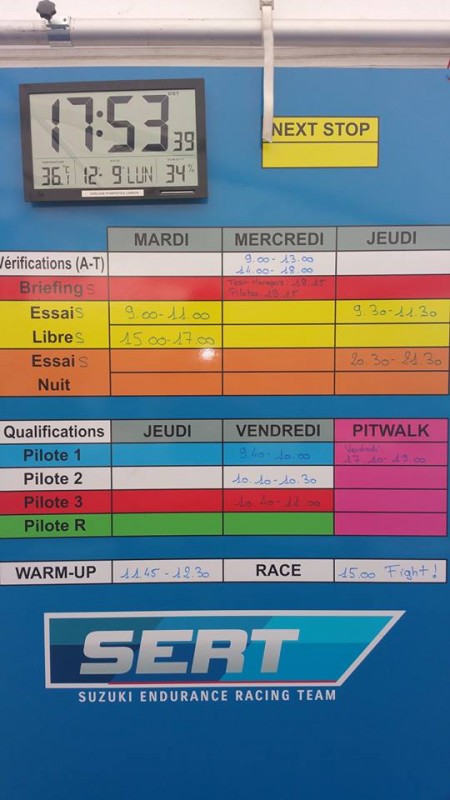 17:53 39
36.1°C 12- 9 LUN 34%
NEXT STOP
MARDI MERCREDI JEUDI
Vérifications (A-T) 9.00 - 13.00
14.00 - 18.00
Briefings Team Managers: 18.15
Pilotes 19.15
Essais 9.00-11.00 9.30-11.30
Libres 15.00-17.00
Essais 20.30-21.30
Nuit
Qualifications JEUDI VENDREDI PITWALK
Pilote 1 9.40 - 10.00 Vendredi
17.10-19.00
Pilote 2 10.10-10.30
Pilote 3 10.40-11.00
Pilote R
WARM-UP 11.45-12.30 RACE 15.00 Fight!
SERT
SUZUKI ENDURANCE RACING TEAM